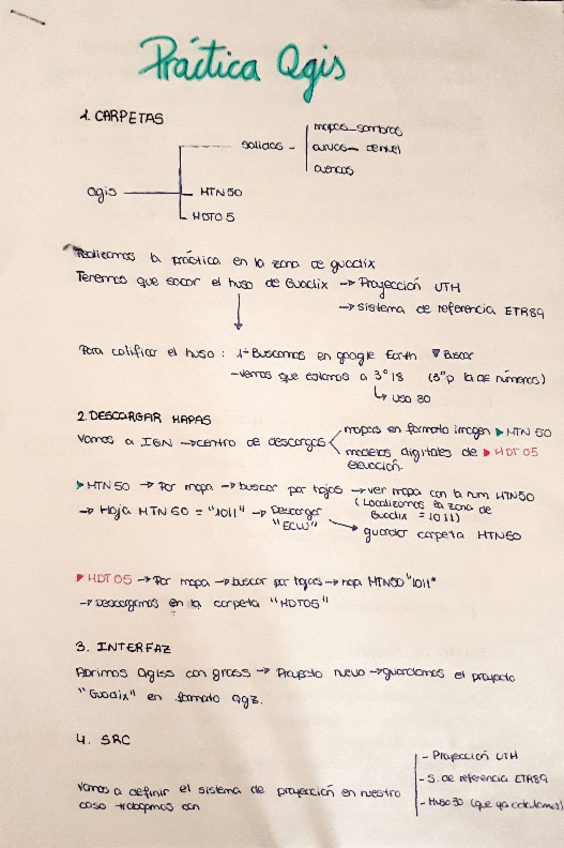 Práctica Qgis
1. CARPETAS
qgis
salidas -
mapas_sombras
curvas_de nivel
cuencas
MTN50
MDT05
Realizamos la práctica en la zona de guadix
Tenemos que sacar el huso de Guadix → Proyección UTM
→ sistema de referencia ETR89
Para calificar el huso : 1- Buscamos en google Earth ▼ Buscar
- vemos que estamos a 3° 18
↳ uso 30
2. DESCARGAR MAPAS
Vamos a IGN → centro de descargas
mapas en formato imagen ▶ MTN 50
modelos digitales de ▶ MDT 05
elevación.
▶ MTN50 → Por mapa → buscar por hojas → ver mapa con la num MTN50
(Localizamos la zona de
Guadix = 1011)
→ Hoja MTN 50 = "1011" → Descargar
"ECW"
→ guardar carpeta MTN50
▶ MDT 05 → Por mapa → buscar por hojas → hoja MTN50 "1011"
→ Descargamos en la carpeta "MDT05"
3. INTERFAZ
Abrimos Qgiss con grass → Proyecto nuevo → guardamos el proyecto
"Guadix" en formato qgz.
4. SRC
Vamos a definir el sistema de proyección en nuestro
caso trabajamos con
- Proyección UTM
- S. de referencia ETR89
- Huso 30 (que ya calculamos)